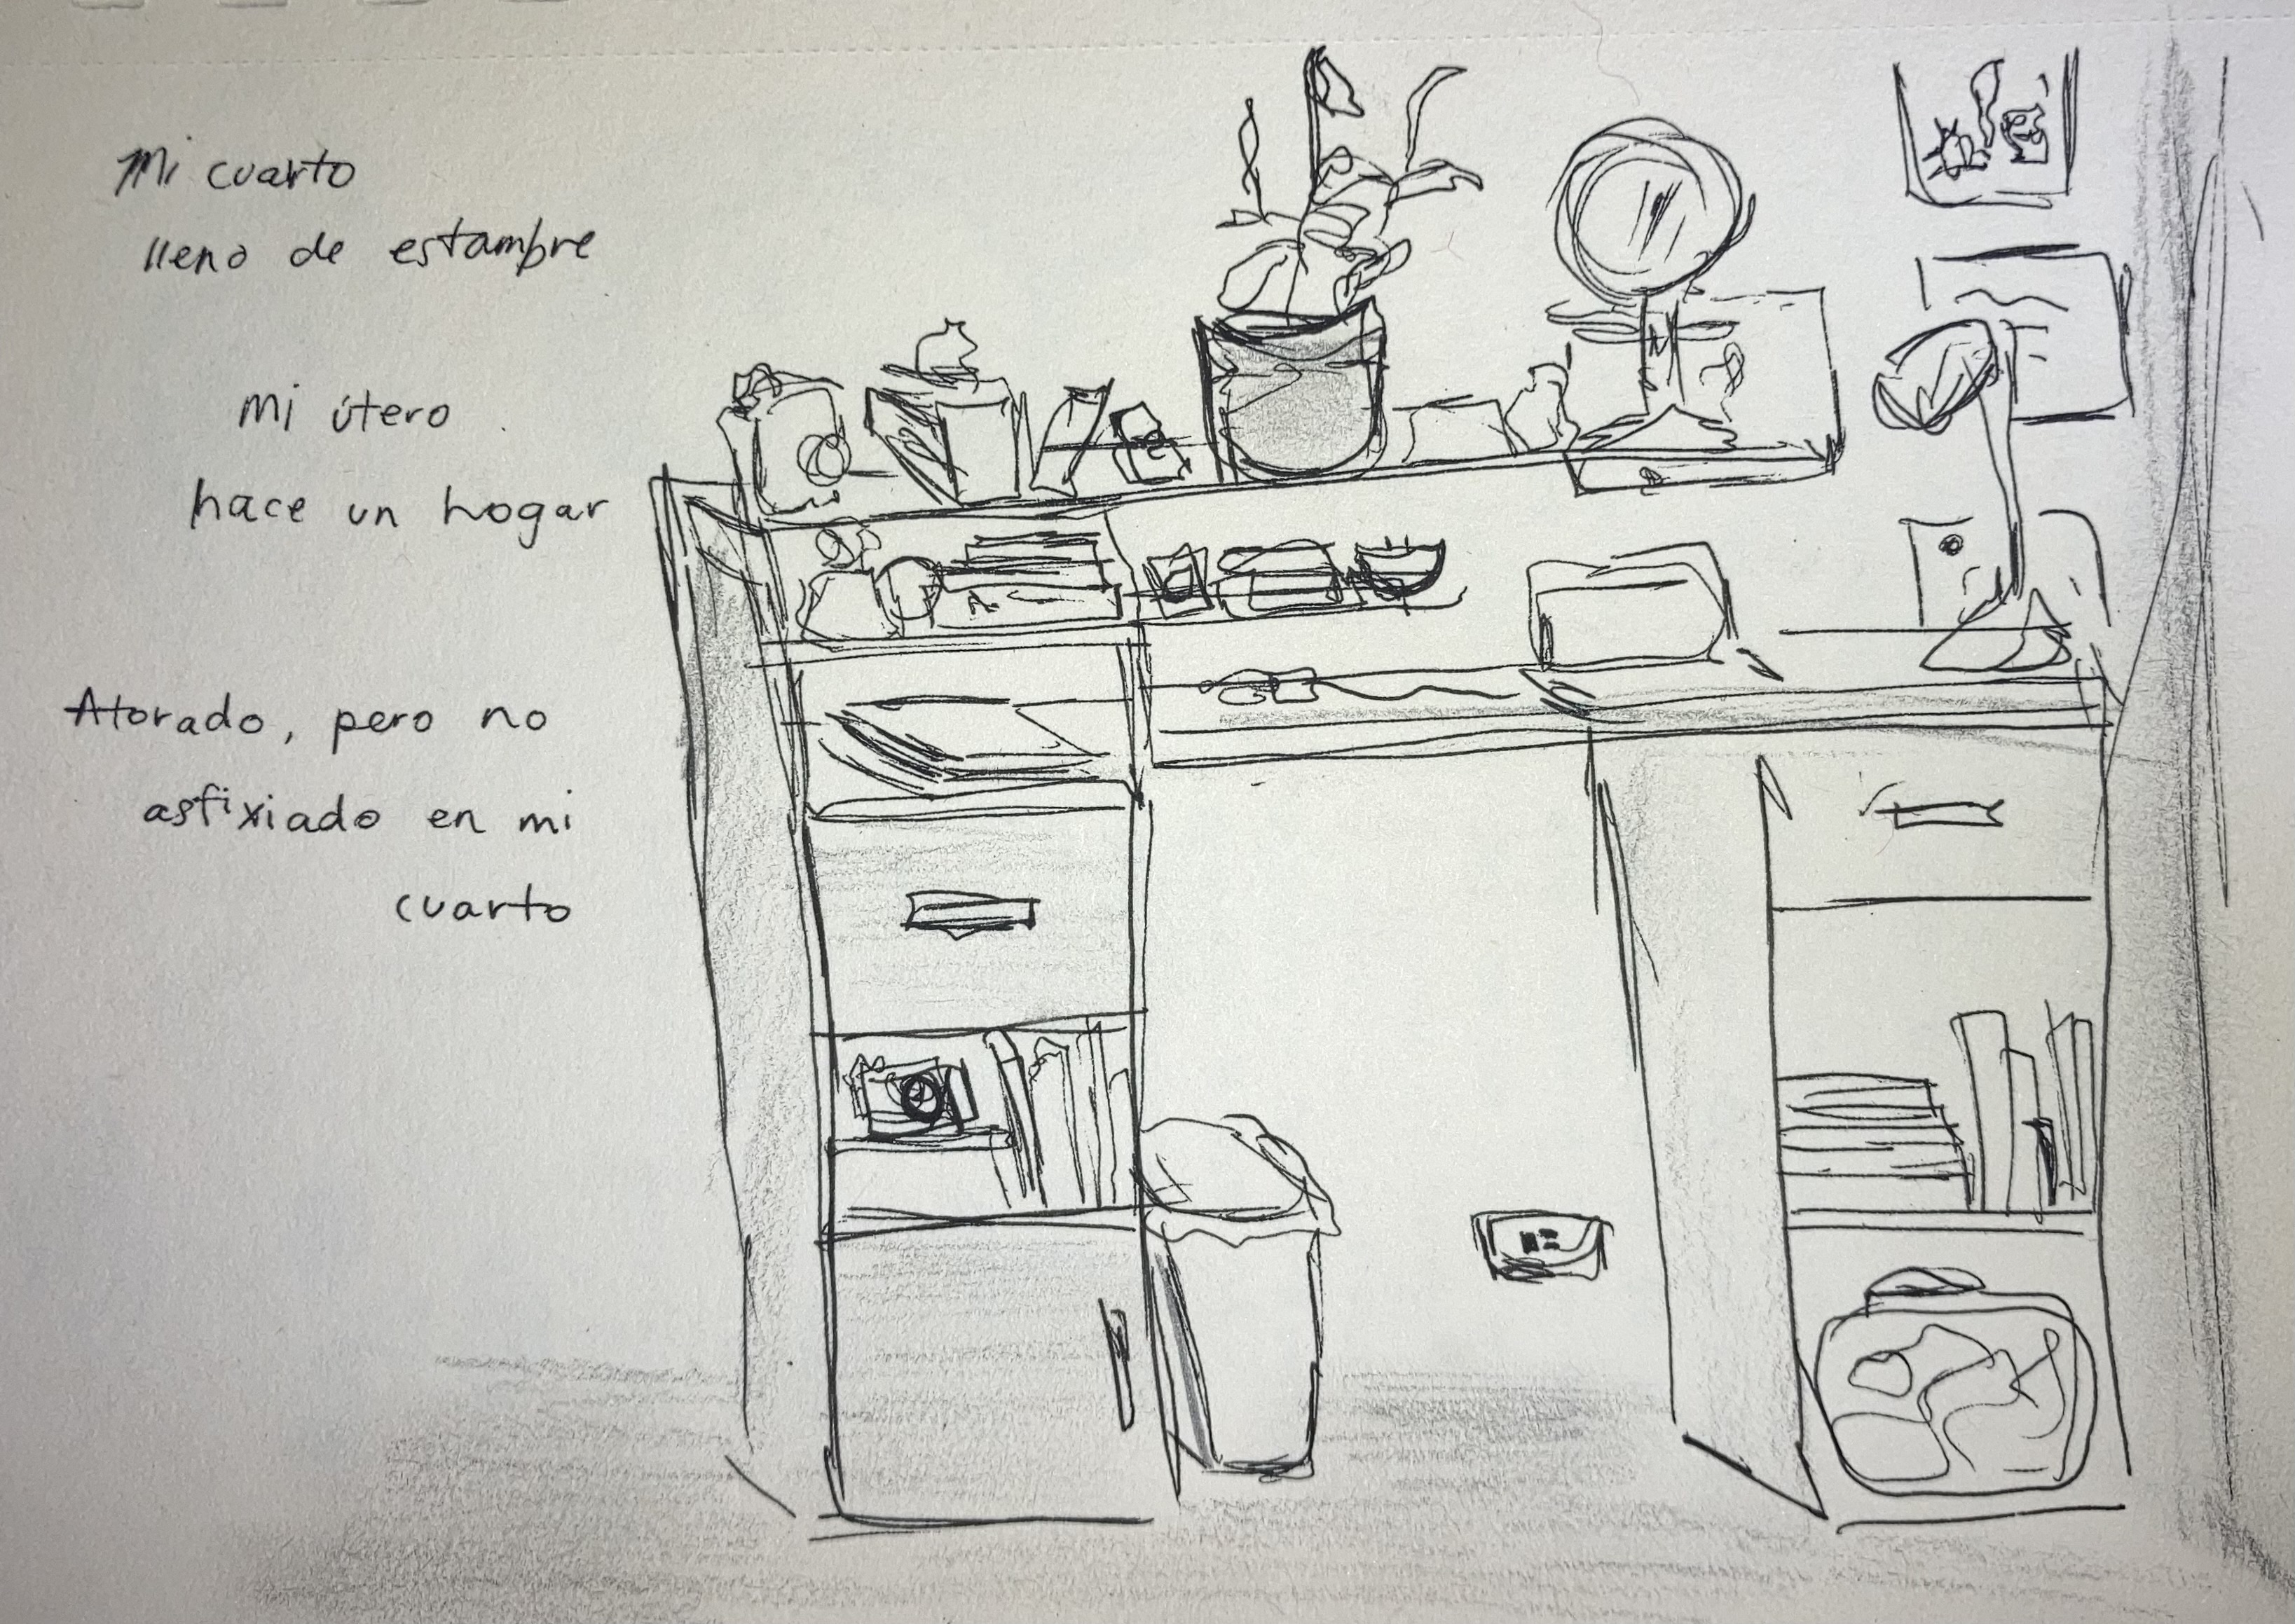 Mi cuarto
lleno de estambre
mi útero
hace un hogar
Atorado, pero no
asfixiado en mi
cuarto